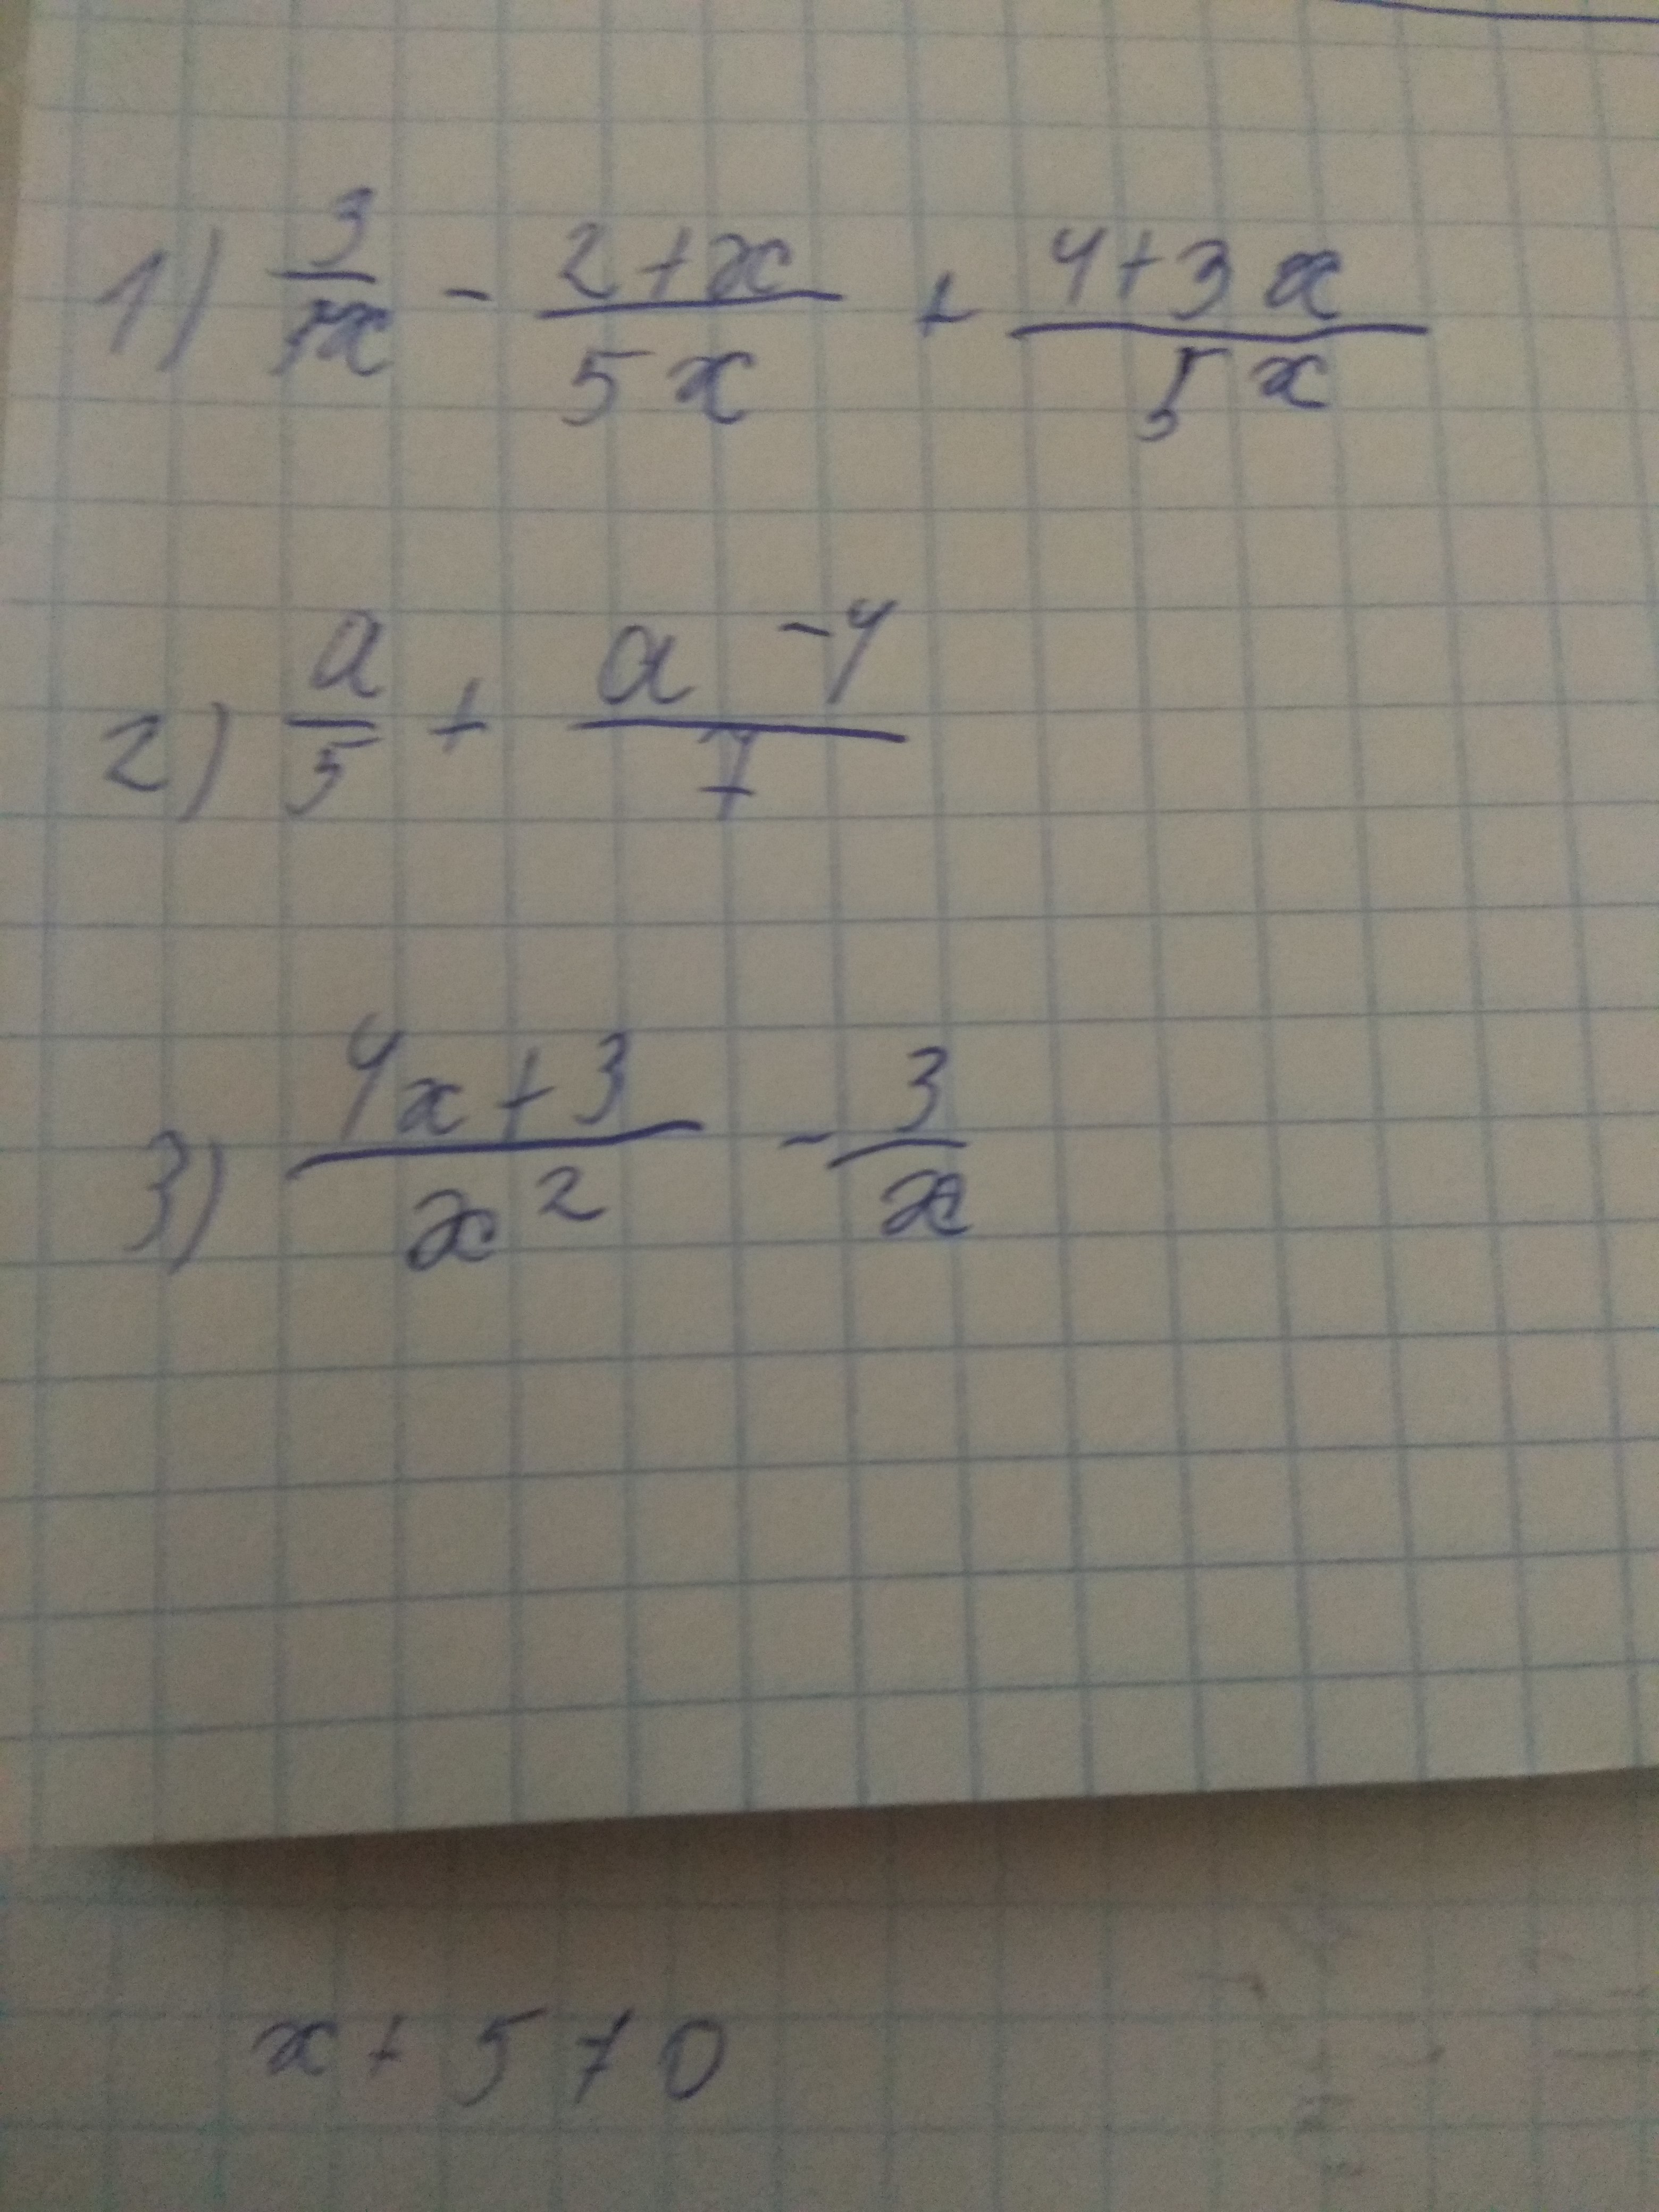 1) 3/5x - (2+x)/5x + (4+3x)/5x
2) a/5 + (a-4)/7
3) (4x+3)/x² - 3/x
x + 5 ≠ 0